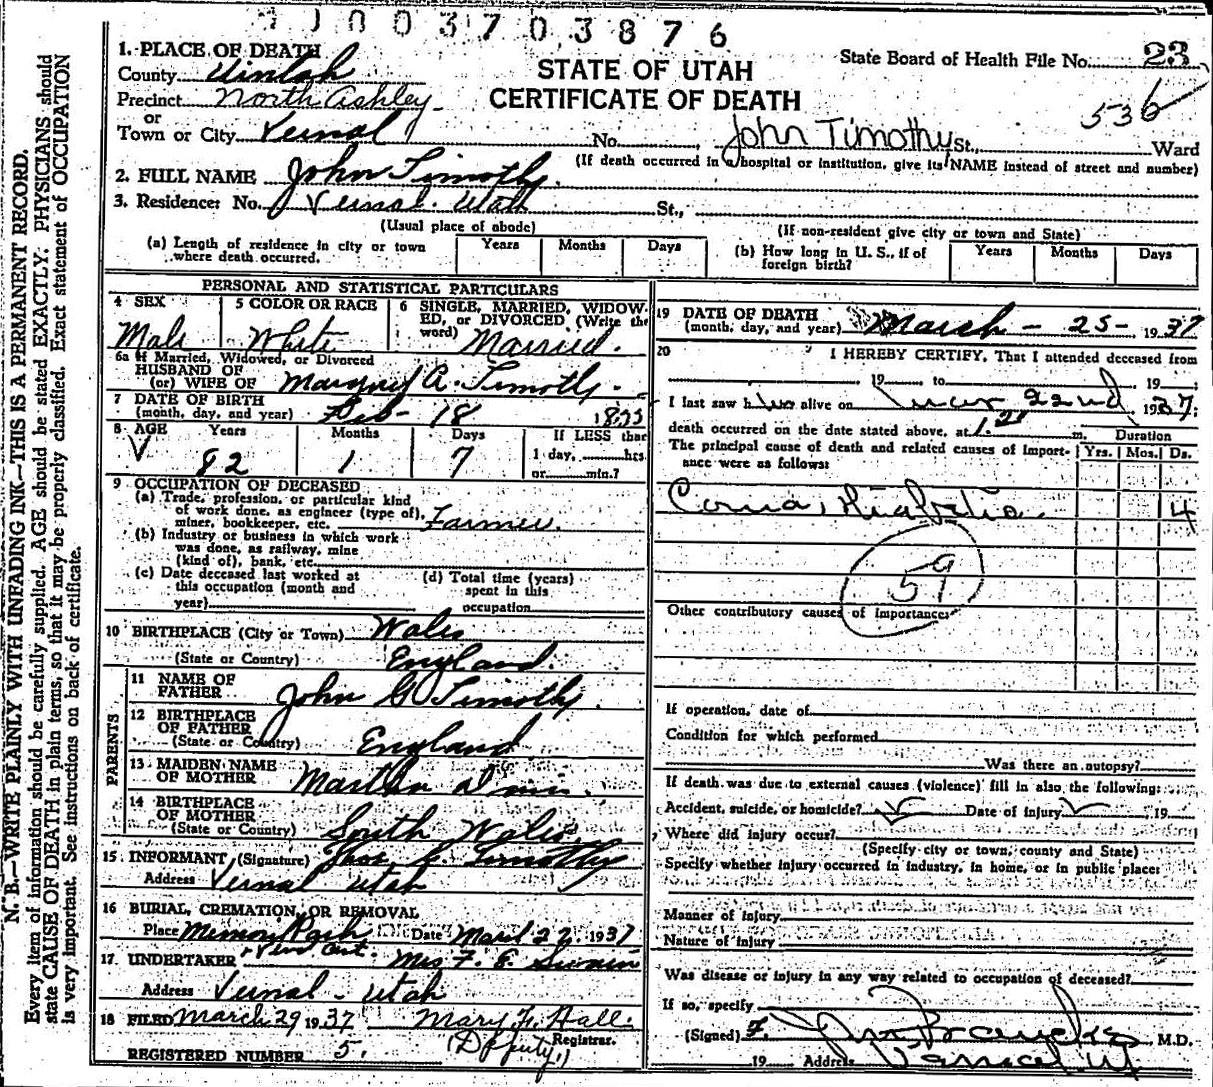 N. B.—WRITE PLAINLY WITH UNFADING INK—THIS IS A PERMANENT RECORD.
Every item of information should be carefully supplied. AGE should be stated EXACTLY. PHYSICIANS should
state CAUSE OF DEATH in plain terms, so that it may be properly classified. Exact statement of OCCUPATION
is very important. See instructions on back of certificate.
003703876
1. PLACE OF DEATH
County Uintah
Precinct North Ashley
or
Town or City Vernal
STATE OF UTAH
CERTIFICATE OF DEATH
State Board of Health File No. 23
536
No. John Timothy St., Ward
(If death occurred in hospital or institution, give its NAME instead of street and number)
2. FULL NAME John Timothy
3. Residence: No. Vernal. Utah St.,
(Usual place of abode) (If non-resident give city or town and State)
(a) Length of residence in city or town where death occurred. Years Months Days
(b) How long in U. S., if of foreign birth? Years Months Days
PERSONAL AND STATISTICAL PARTICULARS
4 SEX Male
5 COLOR OR RACE White
6 SINGLE, MARRIED, WIDOWED, or DIVORCED, (Write the word) Married.
6a If Married, Widowed, or Divorced
HUSBAND OF
(or) WIFE OF A. Timothy
7 DATE OF BIRTH
(month, day, and year) Feb - 18 1855
8 AGE Years Months Days If LESS than
82 1 7 1 day, hrs.
or min.?
9 OCCUPATION OF DECEASED
(a) Trade, profession, or particular kind
of work done, as engineer (type of),
miner, bookkeeper, etc. Farmer.
(b) Industry or business in which work
was done, as railway, mine
(kind of), bank, etc.
(c) Date deceased last worked at
this occupation (month and
year)
(d) Total time (years)
spent in this
occupation
10 BIRTHPLACE (City or Town) Wales
(State or Country) England.
PARENTS
11 NAME OF
FATHER John G Timothy
12 BIRTHPLACE
OF FATHER
(State or Country) England
13 MAIDEN NAME
OF MOTHER
14 BIRTHPLACE
OF MOTHER
(State or Country) South Wales
15 INFORMANT (Signature) Timothy
Address Vernal Utah
16 BURIAL, CREMATION, OR REMOVAL
Place Date 1937
17. UNDERTAKER Mrs F. E. Swain
Address Vernal - Utah
18 FILED March 29 1937 Mary F. Hall.
(Deputy,) Registrar.
REGISTERED NUMBER 5.
19 DATE OF DEATH
(month, day, and year) March - 25 - 1937
20 I HEREBY CERTIFY, That I attended deceased from
, 19 to , 19 ;
I last saw him alive on Mar 22nd, 1937;
death occurred on the date stated above, at m. Duration
The principal cause of death and related causes of importance were as follows: Yrs. Mos. Ds.
Coma, Diabetic. 4
59
Other contributory causes of importance:
If operation, date of
Condition for which performed
Was there an autopsy?
If death was due to external causes (violence) fill in also the following:
Accident, suicide, or homicide? Date of injury 19
Where did injury occur?
(Specify city or town, county and State)
Specify whether injury occurred in industry, in home, or in public place:
Manner of injury
Nature of injury
Was disease or injury in any way related to occupation of deceased?
If so, specify
(Signed) M.D.
19 Address Vernal Ut